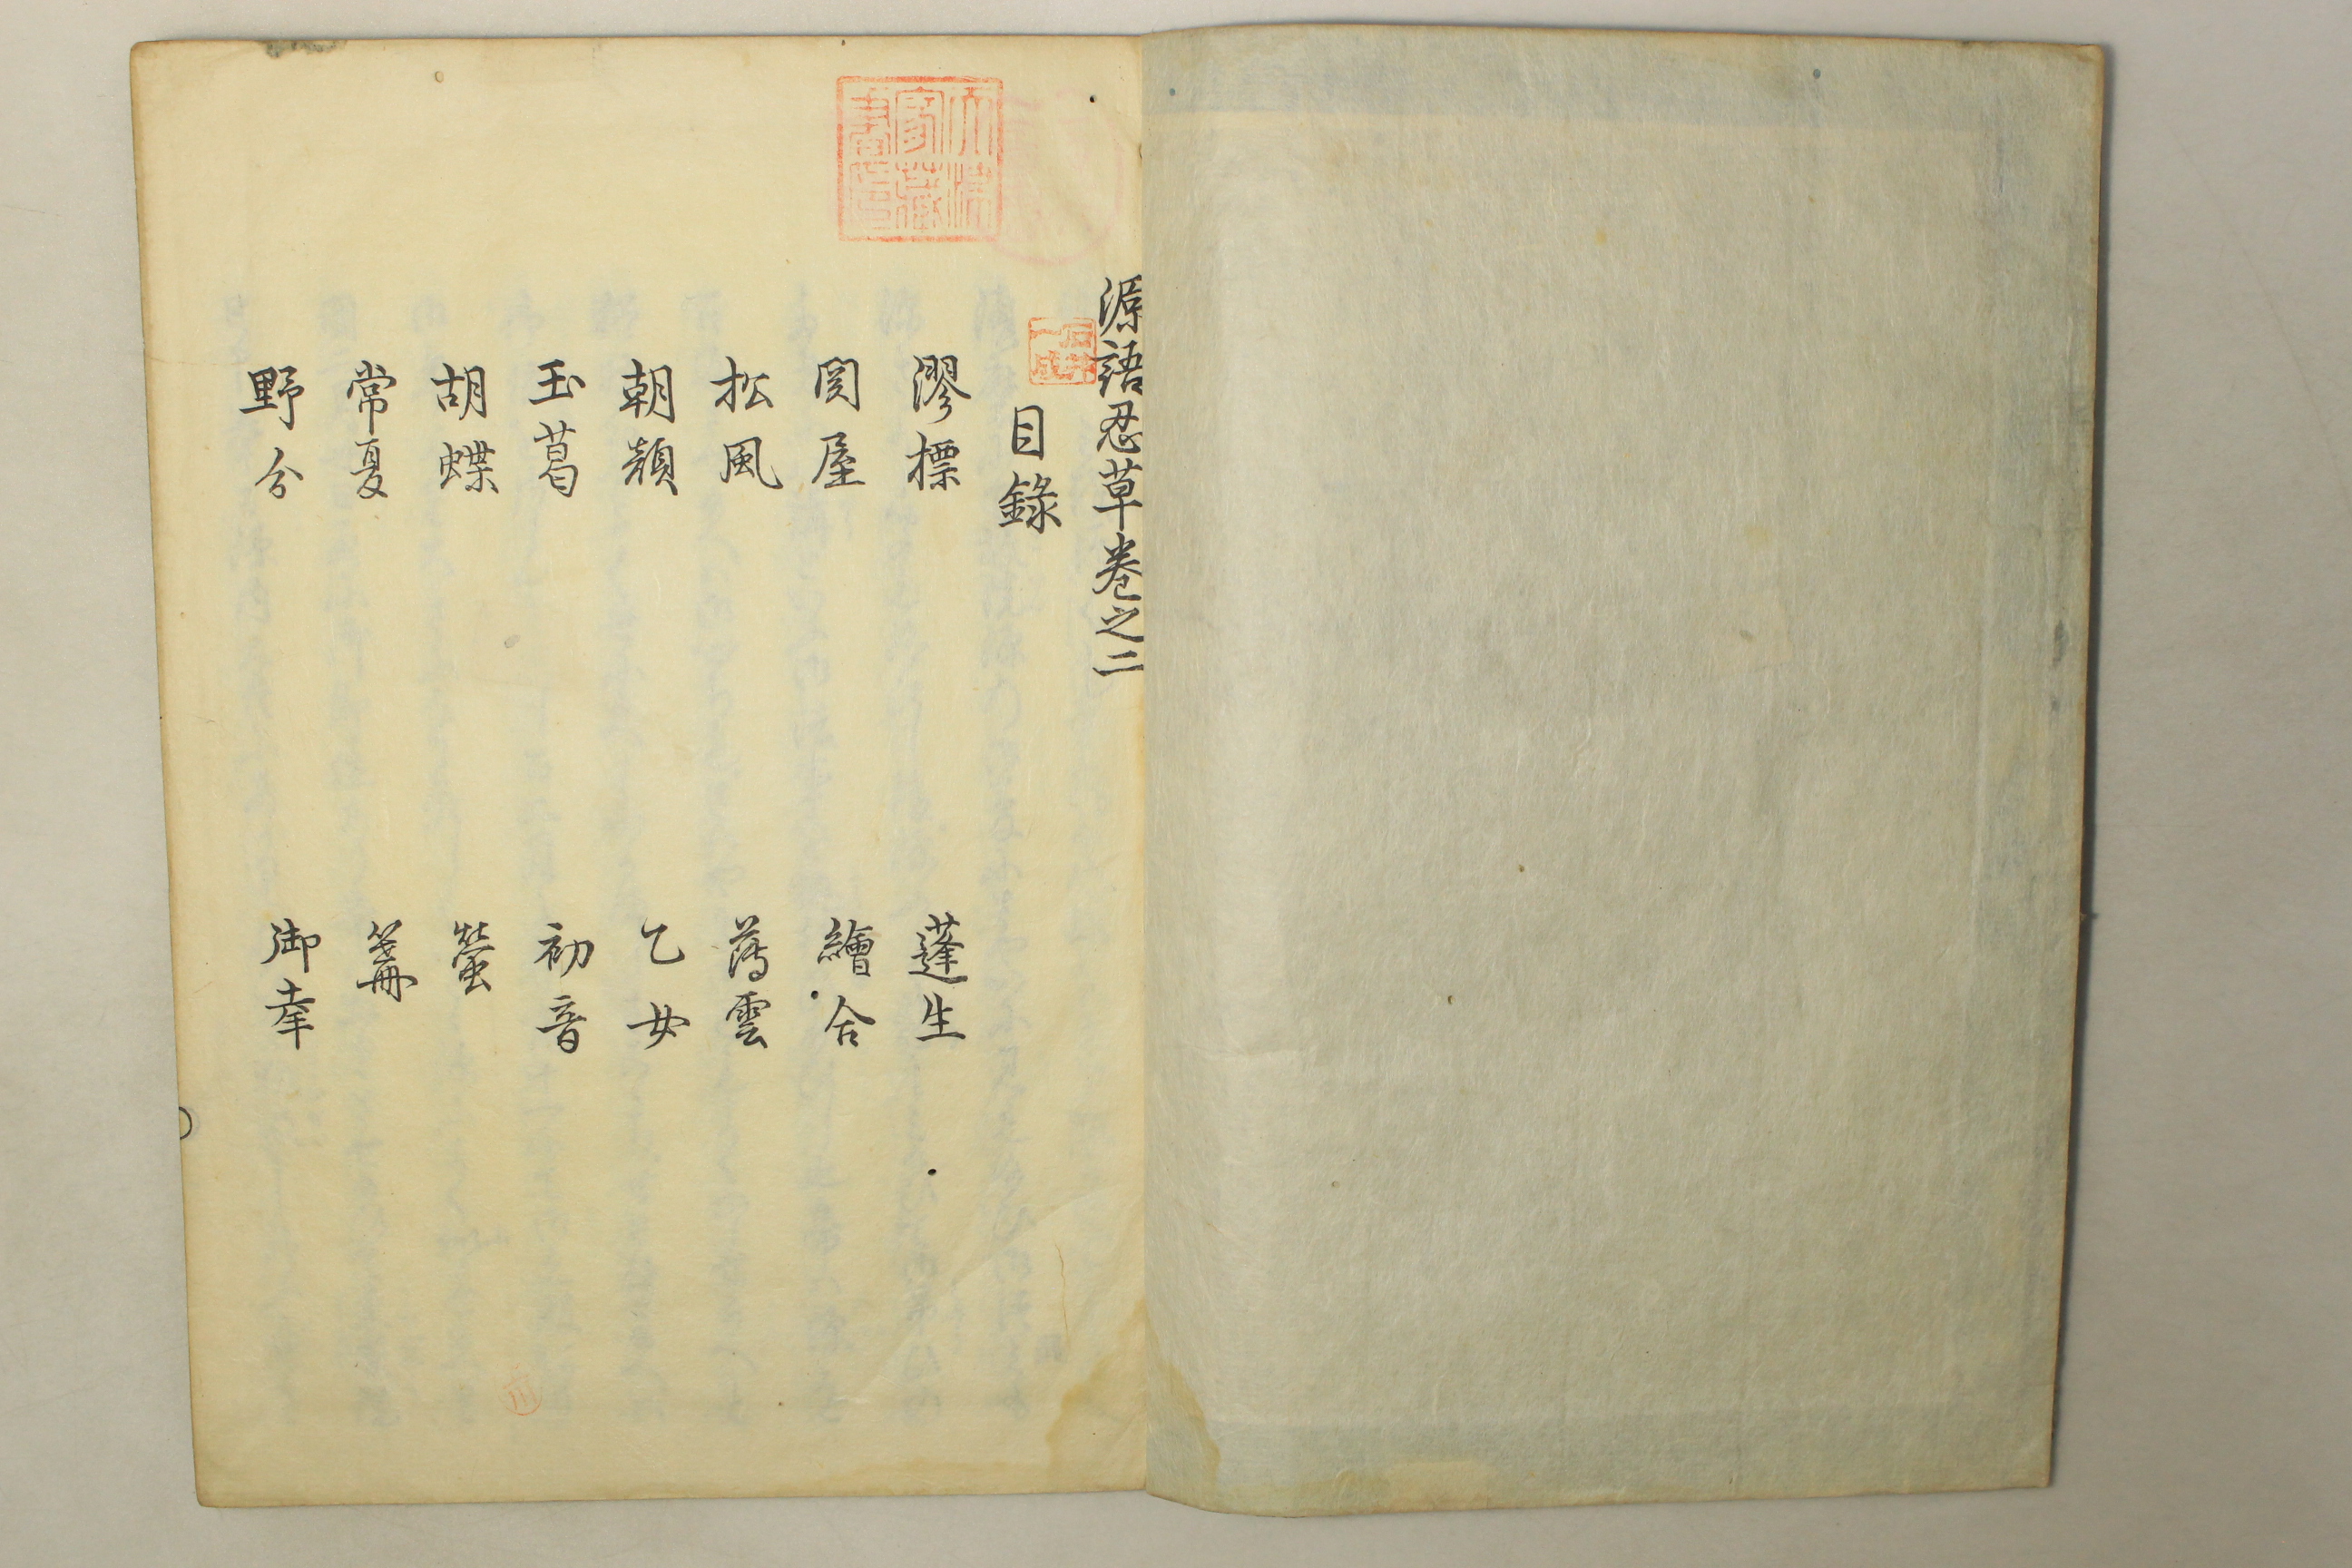 源語忍草巻之二
目録
澪標 蓬生
関屋 繪合
松風 薄雲
朝顔 乙女
玉葛 初音
胡蝶 螢
常夏 篝
野分 御幸